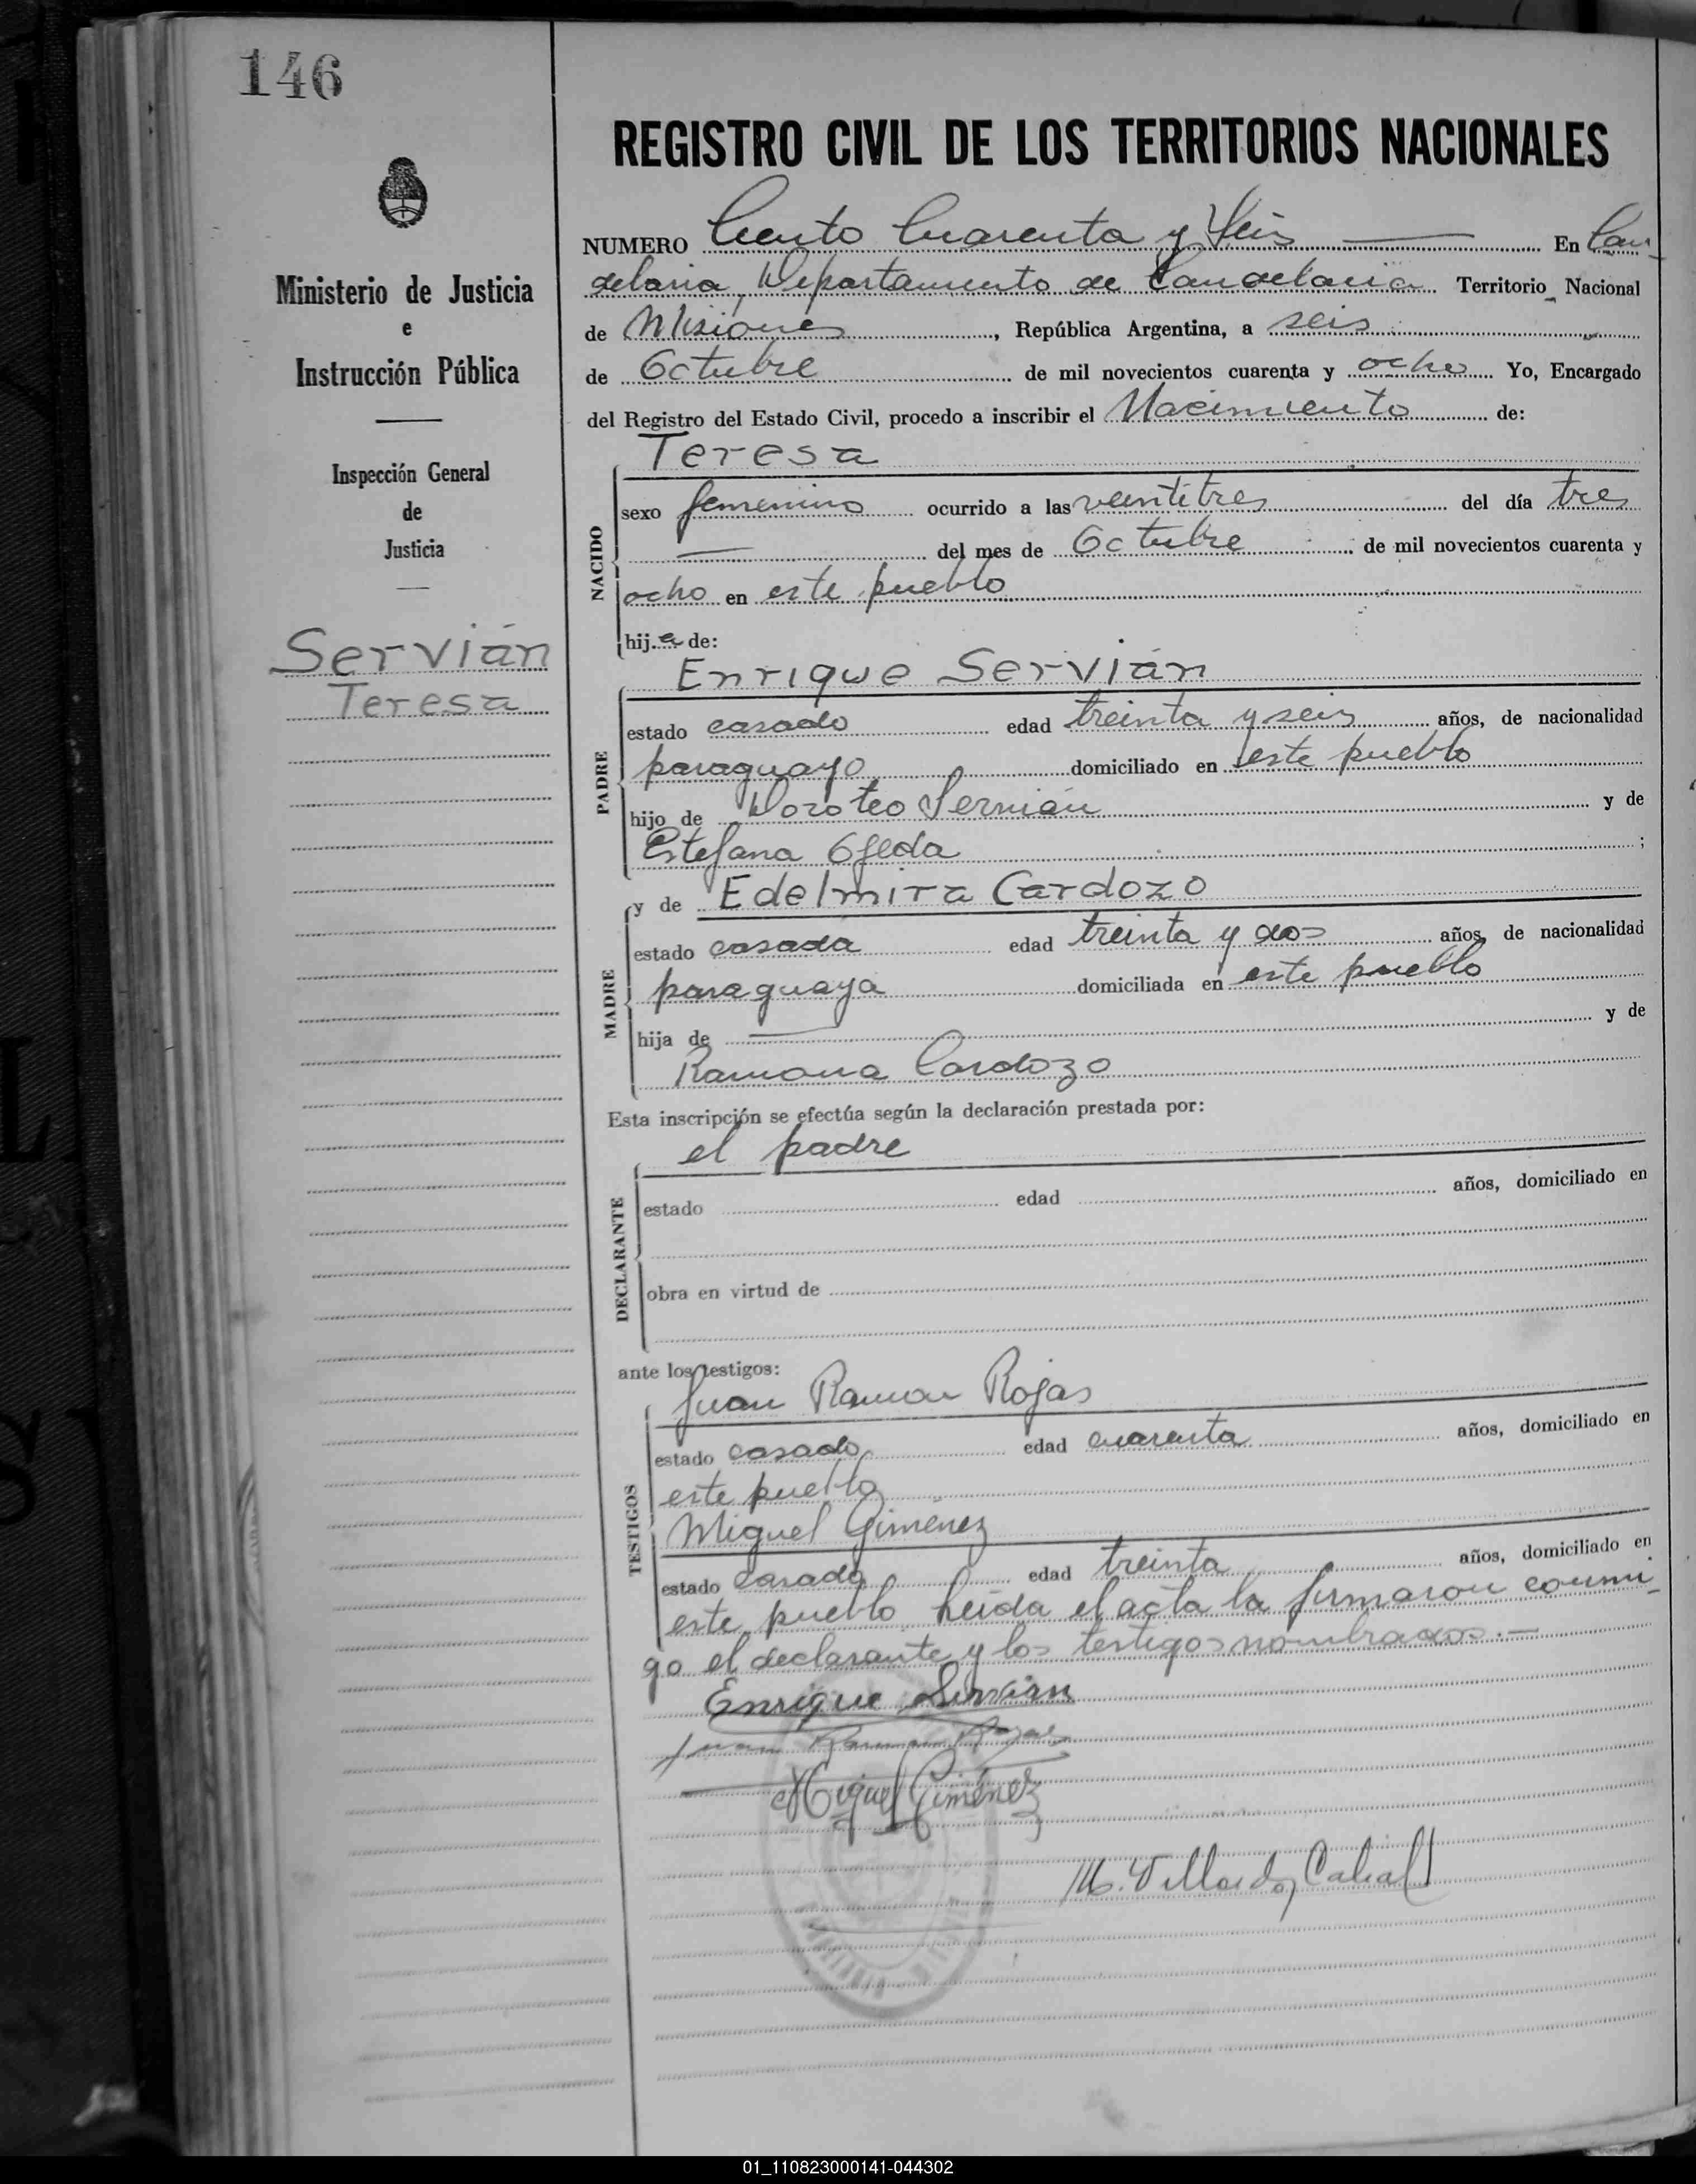 146
REGISTRO CIVIL DE LOS TERRITORIOS NACIONALES
Ministerio de Justicia
e
Instrucción Pública
Inspección General
de
Justicia
Servián
Teresa
NUMERO Ciento Cuarenta y Seis En Can-
delaria, Departamento de Candelaria Territorio Nacional
de Misiones, República Argentina, a seis
de Octubre de mil novecientos cuarenta y ocho Yo, Encargado
del Registro del Estado Civil, procedo a inscribir el Nacimiento de:
Teresa
NACIDO
sexo femenino ocurrido a las veintitres del día tres
del mes de Octubre de mil novecientos cuarenta y
ocho en este pueblo
hija de:
Enrique Servián
PADRE
estado casado edad treinta y seis años, de nacionalidad
paraguayo domiciliado en este pueblo
hijo de Doroteo Servián y de
Estefana Ojeda ;
y de Edelmira Cardozo
MADRE
estado casada edad treinta y dos años, de nacionalidad
paraguaya domiciliada en este pueblo
hija de y de
Ramona Cardozo
Esta inscripción se efectúa según la declaración prestada por:
el padre
DECLARANTE
estado edad años, domiciliado en
obra en virtud de
ante los testigos:
Juan Ramon Rojas
TESTIGOS
estado casado edad cuarenta años, domiciliado en
este pueblo
Miguel Giménez
estado casado edad treinta años, domiciliado en
este pueblo leida el acta la firmaron conmi-
go el declarante y los testigos nombrados.—
Enrique Servian
Juan Ramon Rojas
Miguel Giménez
M. Cabral
01_110823000141-044302